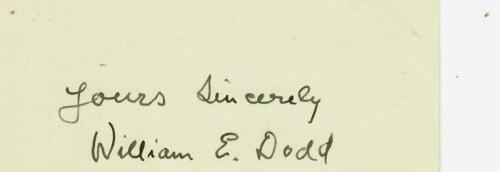 Yours Sincerely
William E. Dodd